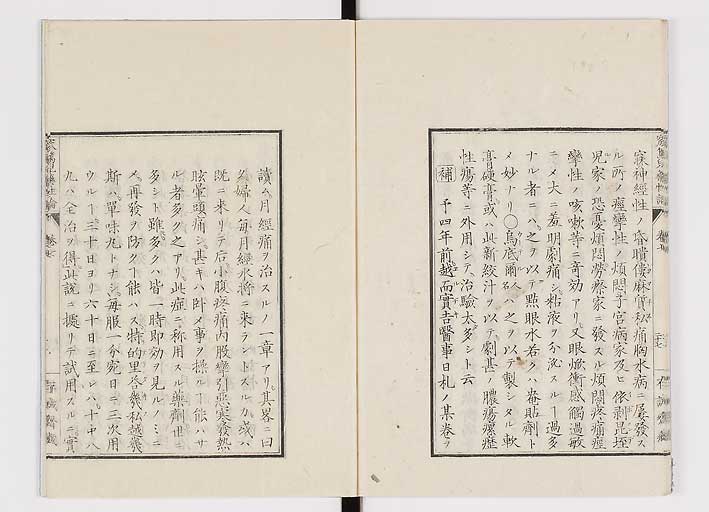 寐神經性ノ昏聵僂麻質私痛胸水病ニ屡發ス
ル所ノ痙攣性ノ煩悶子宮病家及ヒ依剥昆垤
児家ノ恐憂煩悶勞瘵家ニ發スル煩悶疼痛痙
攣性ノ咳嗽等ニ奇効アリ又眼焮衝感觸過敏
ニメ大ニ羞明劇痛シ粘液ヲ分泌スルー過多
ナル者ニハ之ヲ以テ點眼水若クハ巻貼劑ト
メ妙ナリ〇烏底爾人名ハ之ヲ以テ製シタル軟
膏硬膏或ハ此新絞汁ヲ以テ劇甚ノ膿瘍瘰癧
性瘍等ニ外用シテ治驗太多シト云
補 予四年前越而實吉醫事日札ノ某巻ヲ
讀ム月經痛ヲ治スルノ一章アリ其畧ニ曰
ク婦人毎月經水將ニ來ラントスルカ或ハ
既ニ來リテ后小腹疼痛内股攣引悪寒發熱
眩暈頭痛シ甚キハ臥メ事ヲ操ルー能ハサ
ル者多ク之アリ此症ニ称用スル藥劑世ニ
多シト雖多クハ皆一時即効ヲ見ルノミニ
メ再發ヲ防クー能ハス特的里啓幾私越幾
斯ハ單味丸トナシ毎服一分宛日ニ三次用
ウルー三十日ヨリ六十日ニ至レハ十中八
九ハ全治ヲ得此説ニ據リテ試用スルニ實